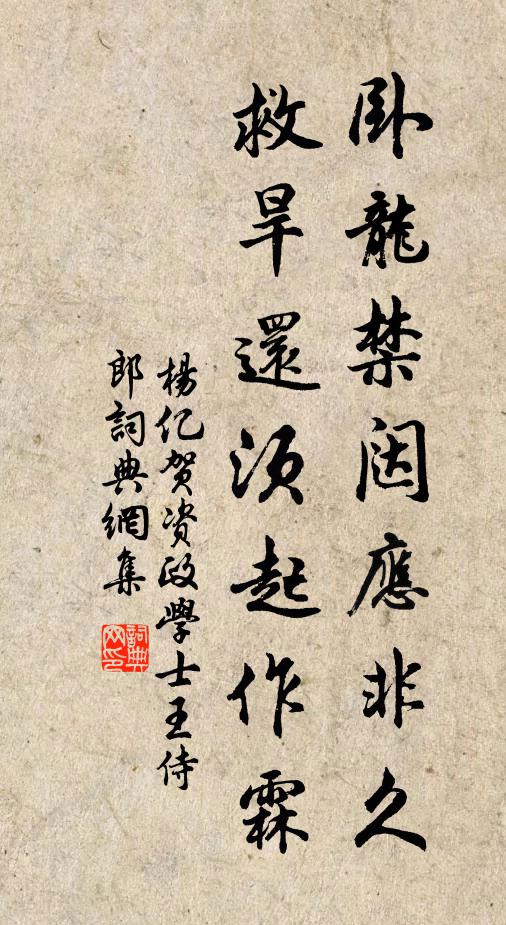 臥龍禁闥應非久
救旱還須起作霖
楊億賀資政學士王侍
郎詞典網集
詞典
网印